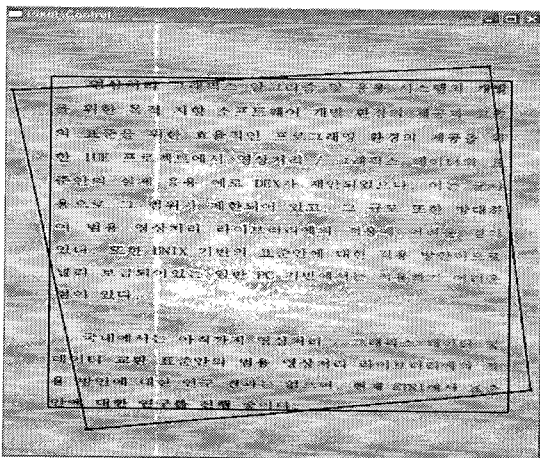 Pixel Control
영상처리 그래픽스 알고리즘 및 응용 시스템의 개발
을 위한 목적 지향 소프트웨어 개발 환경의 제공과
의 표준을 위한 효율적인 프로그래밍 환경의 제공을
한 프로젝트에서 영상처리 / 그래픽스 데이터의 표
준안의 실제 응용 예로 DEX가 제안되었으나, 이는
용으로 그 범위가 제한되어 있고, 그 규모 또한 방대하
여 범용 영상처리 라이브러리에의 적용에 어려운 점이
있다. 또한 UNIX 기반의 표준안에 대한 적용 방안이므로
널리 보급되어있는 일반 PC 기반에서는 적용하기 어려운
점이 있다.
국내에서는 아직까지 영상처리 / 그래픽스 데이터 및
데이터 교환 표준안의 범용 영상처리 라이브러리에의 적
용 방안에 대한 연구 결과는 없으며, 현재 ETRI에서 표준
안에 대한 연구를 진행 중이다.